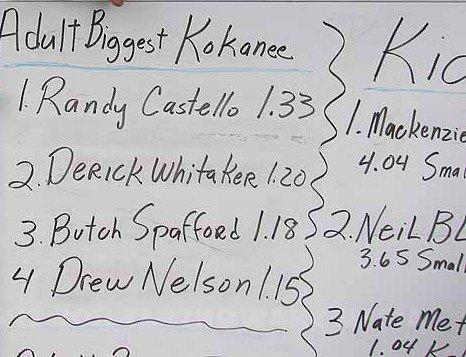 Adult Biggest Kokanee
1. Randy Castello 1.33
2. Derick Whitaker 1.20
3. Butch Spafford 1.18
4 Drew Nelson 1.15
1. Mackenzie
4.04
2. Neil
3.65
3 Nate
1.04